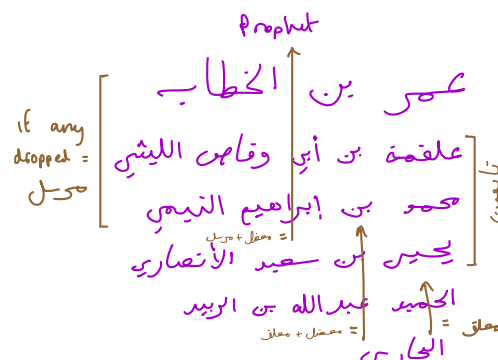 Prophet
عمر بن الخطاب
علقمة بن أبي وقاص الليثي
محمد بن إبراهيم التيمي
يحيى بن سعيد الأنصاري
الحميد عبدالله بن الزبير
البخاري
if any
dropped =
مرسل
تابعين
= معضل + مرسل
= معضل + معلق
= معلق